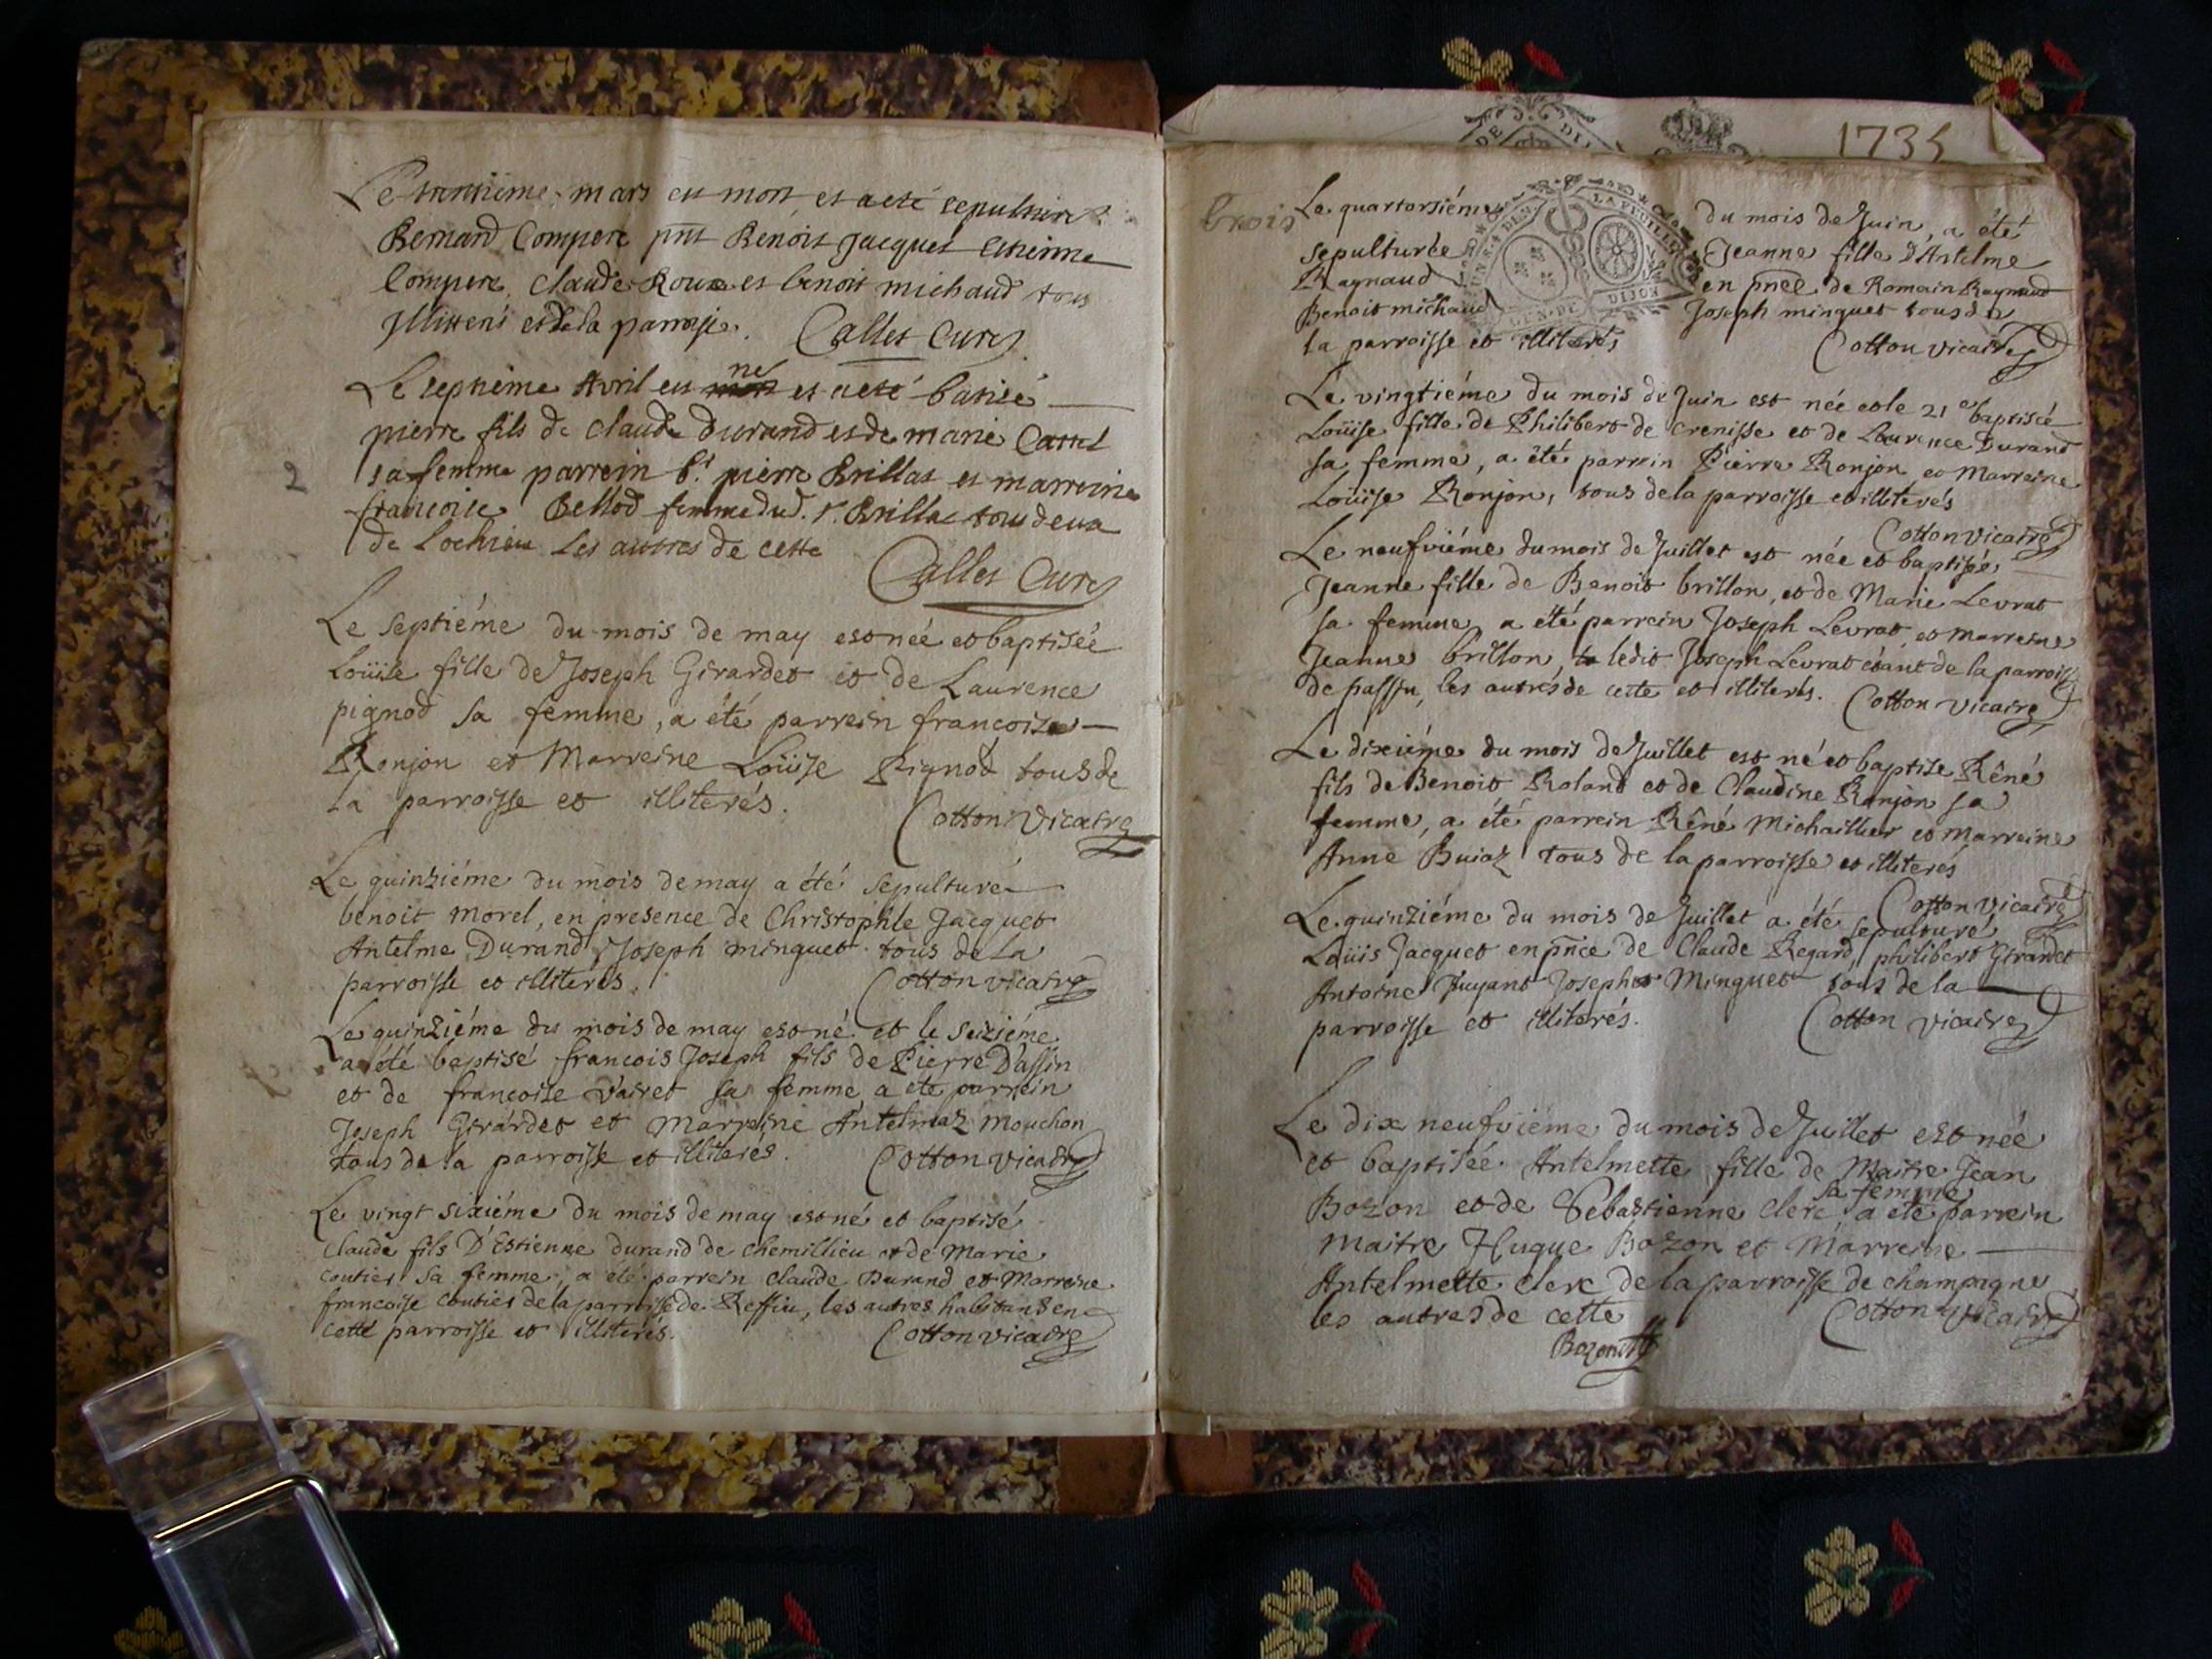 Le trentième mars est mort et a eté sepulturé
Bernard Compere pnt Benoit Jacquet Etienne
Compere, Claude Roux et benoit michaud tous
Illiterés et de la parroisse. Callet Curé
Le septième Avril est né et a eté batisé
pierre fils de Claude Durand et de marie
2
sa femme parrein Sr. pierre Brillat et marreine
francoise Bellod femme dud. Sr. Brillat tous deux
de Lochieu Les autres de cette
Callet Curé
Le septiéme du mois de may est née et baptisée
Loüise fille de Joseph Girardet et de Laurence
pignod sa femme, a été parrein francoise
Ronjon et Marreine Loüise Pignod tous de
la parroisse et illiterés.
Cotton Vicaire
Le quinziéme du mois de may a été sepulturé
benoit morel, en presence de Christophle Jacquet
Antelme Durand, Joseph minguet tous de La
parroisse et illiterés. Cotton vicaire
Le quinziéme du mois de may est né et le seiziéme
a été baptisé francois Joseph fils de Pierre Dassin
et de francoise Vairet sa femme a été parrein
Joseph Girardet et Marreine Antelmaz Mouchon
tous de la parroisse et illiterés. Cotton vicaire
Le vingt sixiéme du mois de may est né et baptisé
Claude fils D'Estienne Durand de chemillieu et de Marie
coutier sa femme, a été parrein claude Durand et Marreine
francoise coutier de la parroisse de Reffieu, les autres habitans en
cette parroisse et illiterés. Cotton vicaire
1735
trois
Le quartorsiéme du mois de Juin, a été
sepulturée Jeanne fille d'Antelme
Raynaud en pnce de Romain Raynaud
Benoit michaud Joseph minguet tous de
la parroisse et illiterés Cotton vicaire
GEN. DE DIJON
Le vingtiéme du mois de Juin est née et le 21e baptisée
Loüise fille de Philibert de crenisse et de Laurence Durand
sa femme, a été parrein Pierre Ronjon et Marreine
Loüise Ronjon, tous de la parroisse et illiterés
Cotton vicaire
Le neufviéme du mois de Juillet est née et baptisée
Jeanne fille de Benoit brillon, et de Marie Levrat
sa femme, a été parrein Joseph Levrat et marreine
Jeanne brillon, ledit Joseph Levrat étant de la parroisse
de passin, les autres de cette et illiterés. Cotton vicaire
Le dixiéme du mois de Juillet est né et baptisé Réné
fils de Benoit Roland et de Claudine Ronjon sa
femme, a été parrein Réné Michaillier et Marreine
Anne Buiaz tous de la parroisse et illiterés
Cotton vicaire
Le quinziéme du mois de Juillet a été sepulturé
Loüis Jacquet en pnce de Claude Regard, philibert Girardet
Antoine Juyant Joseph Minguet tous de la
parroisse et illiterés. Cotton vicaire
Le dix neufviéme du mois de Juillet est née
et baptisée Antelmette fille de Maitre Jean
Bozon et de Sebastienne Clerc sa femme a été parrein
Maitre Hugue Bozon et Marreine
Antelmette clerc de la parroisse de champagne
les autres de cette Cotton vicaire
Bozon